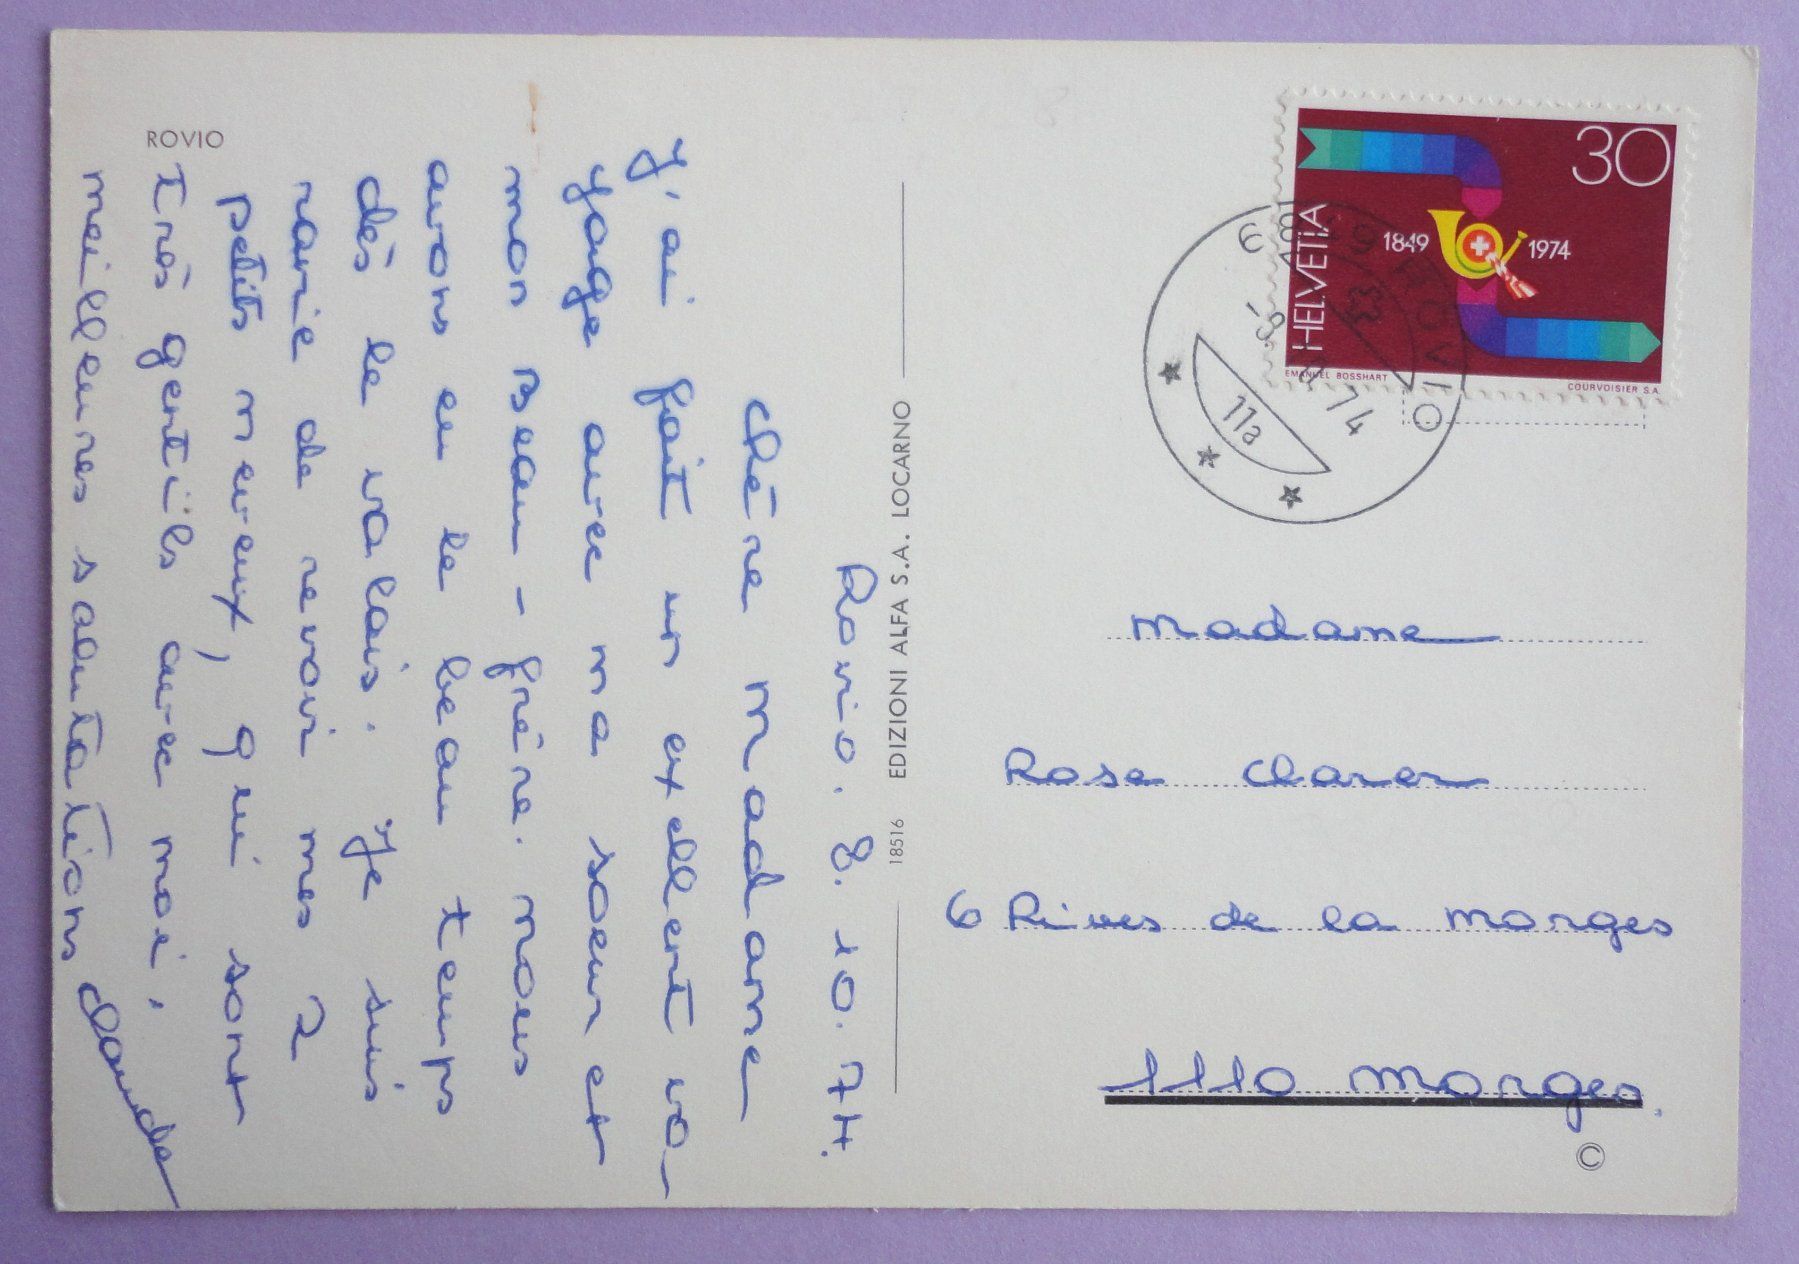 ROVIO
Rovio. 8. 10. 74.
Chère Madame
J'ai fait un exellent vo-
yage avec ma soeur et
mon Beau-frère. Nous
avons eu le beau temps
dès le valais. Je suis
ravie de revoir mes 2
petits neveux, qui sont
très gentils avec moi,
meilleures salutations Claude
18516 EDIZIONI ALFA S.A. LOCARNO
30
HELVETIA
1849 1974
EMANUEL BOSSHART
COURVOISIER S.A.
ROVIO
74
11a
Madame
Rose
6 Rives de la Morges
1110 Morges.
©